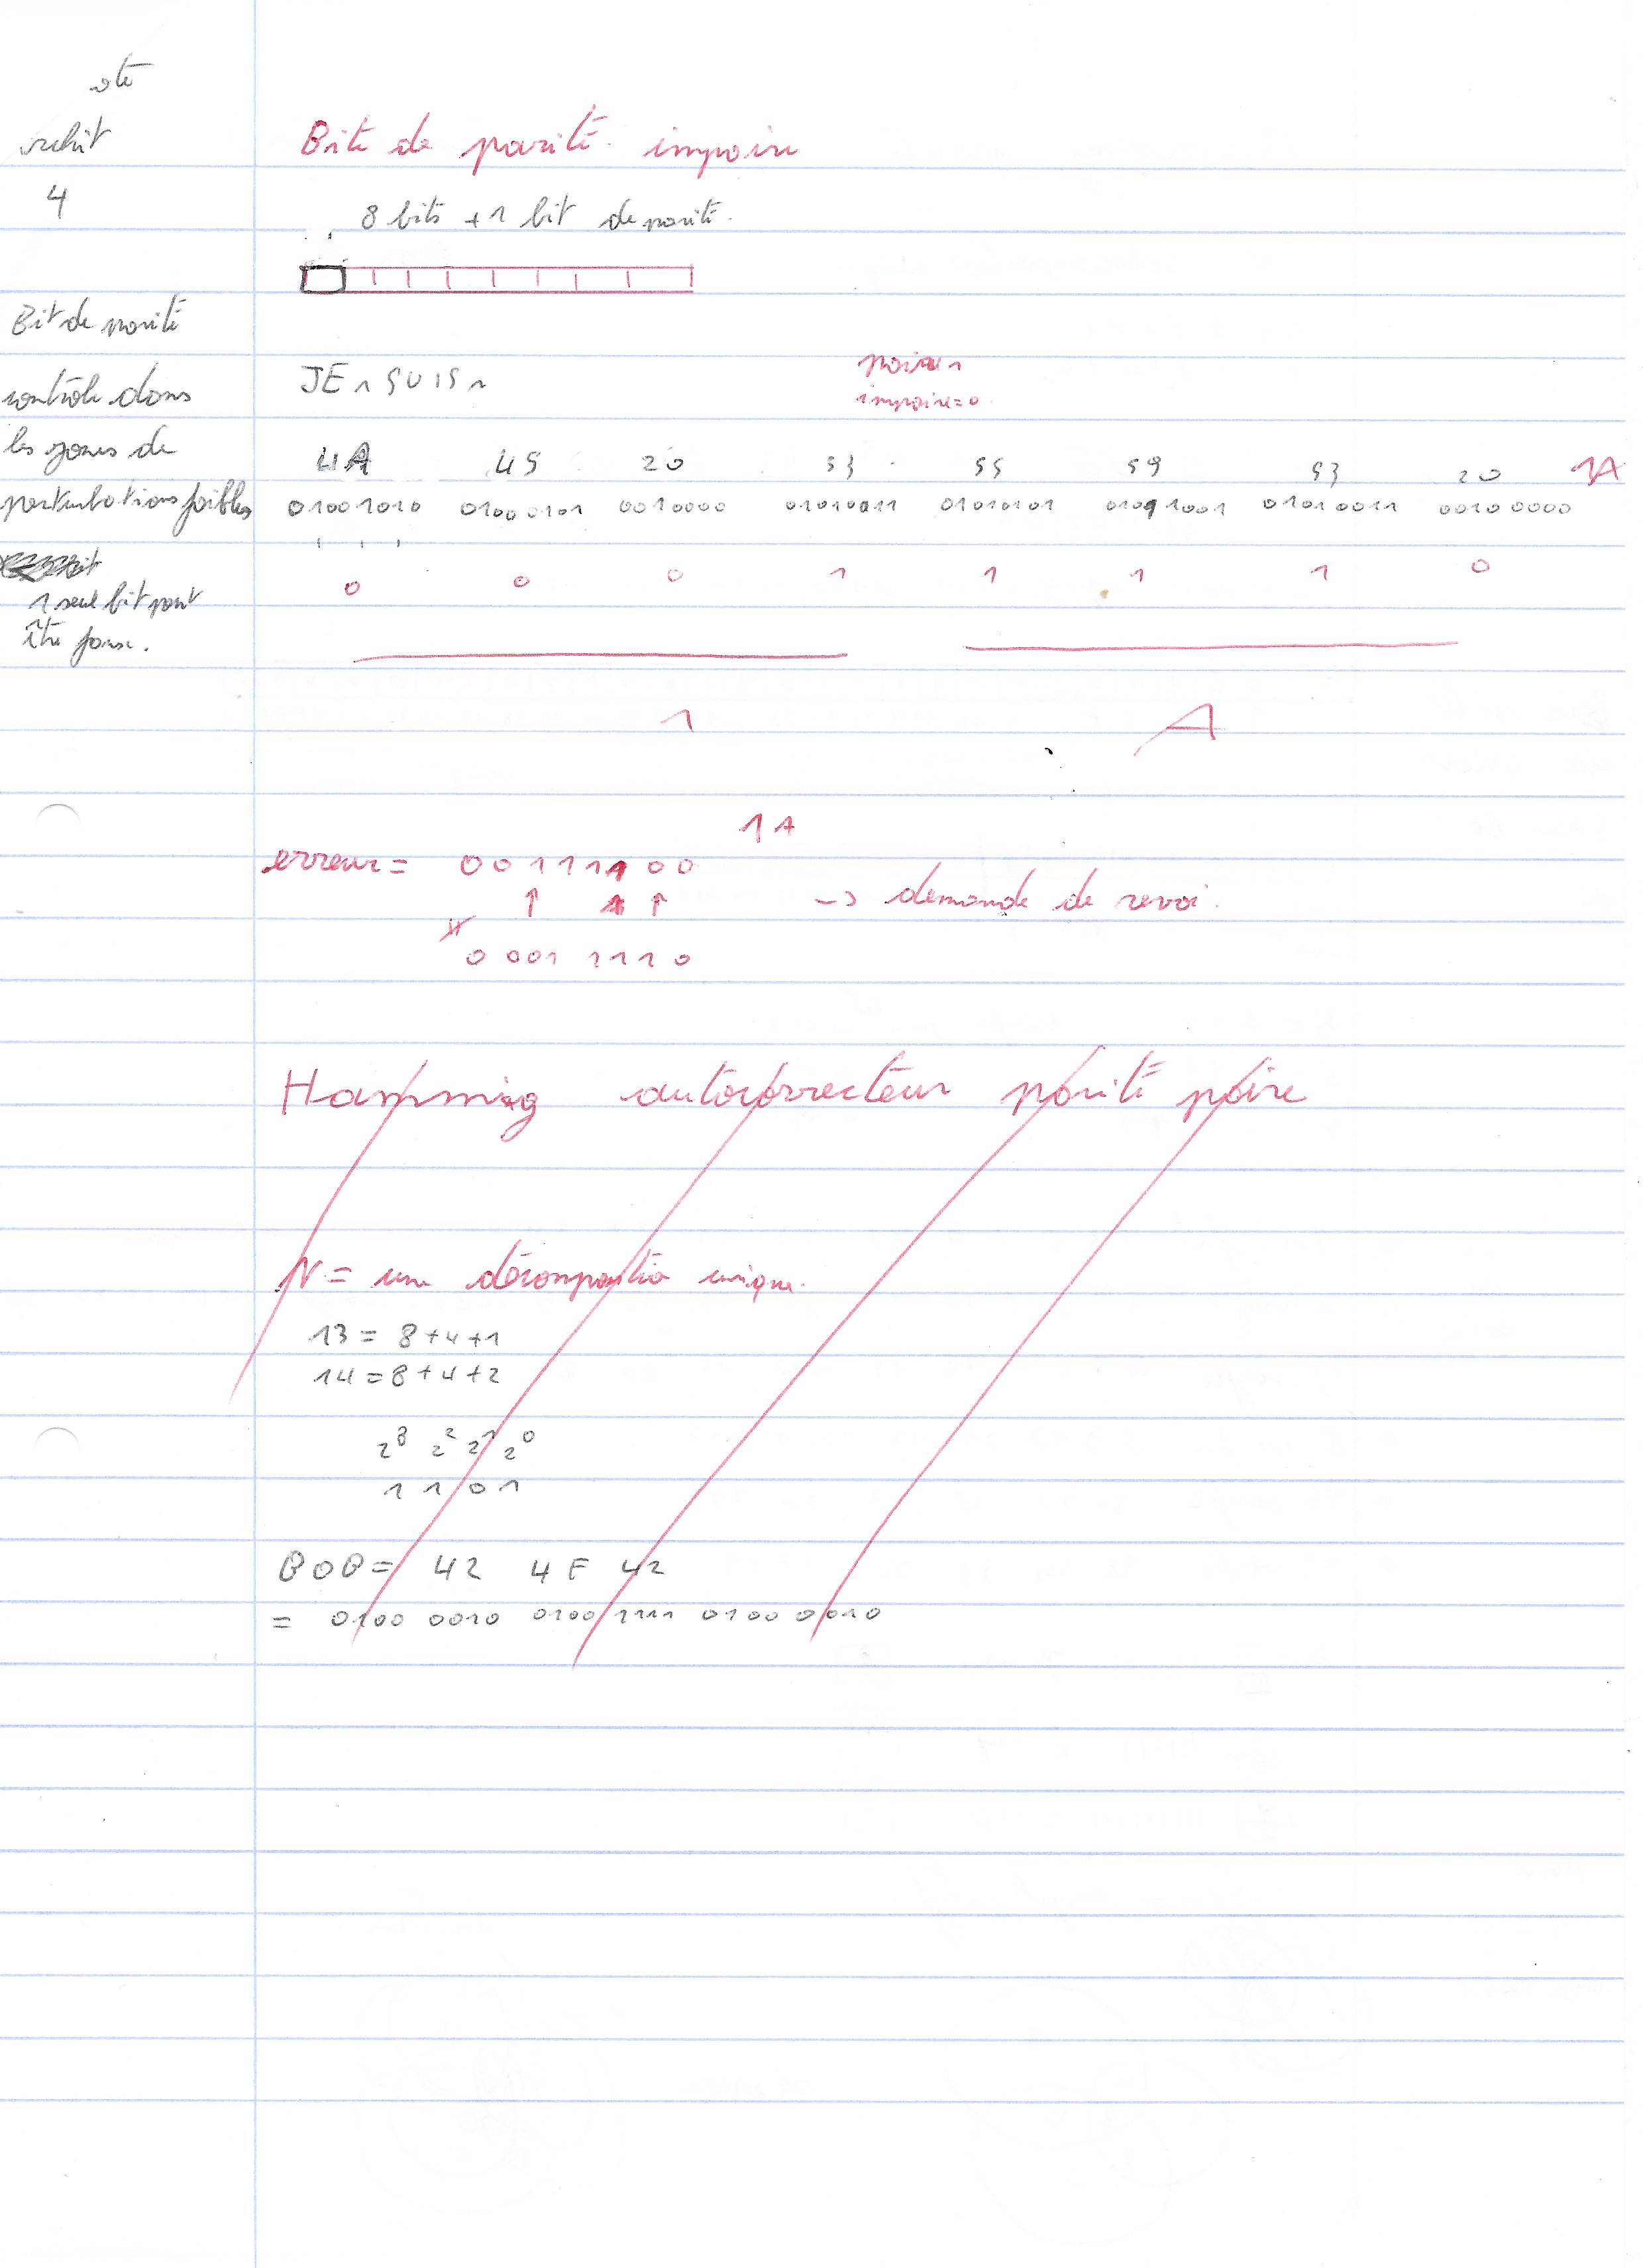 Bite de parité impaire
4
8 bits + 1 bit de parité.
Bit de parité
contrôle dans
les zones de
perturbations faibles
1 seul bit peut
être faux.
JE ^ SUIS ^
paire 1
impaire=0
4A 45 20 53 55 59 53 20 1A
01001010 01000101 0010000 01010011 01010101 01001001 01010011 00100000
0 0 0 1 1 1 1 0
1 A
1A
erreur = 00111100
↑ ↑ ↑ -> demande de revoi.
0 001 1110
Hamming autocorrecteur parité paire
N = une décomposition unique.
13 = 8+4+1
14 = 8+4+2
2³ 2² 2¹ 2⁰
1 1 0 1
BOB = 42 4F 42
= 0100 0010 0100 1111 0100 0010